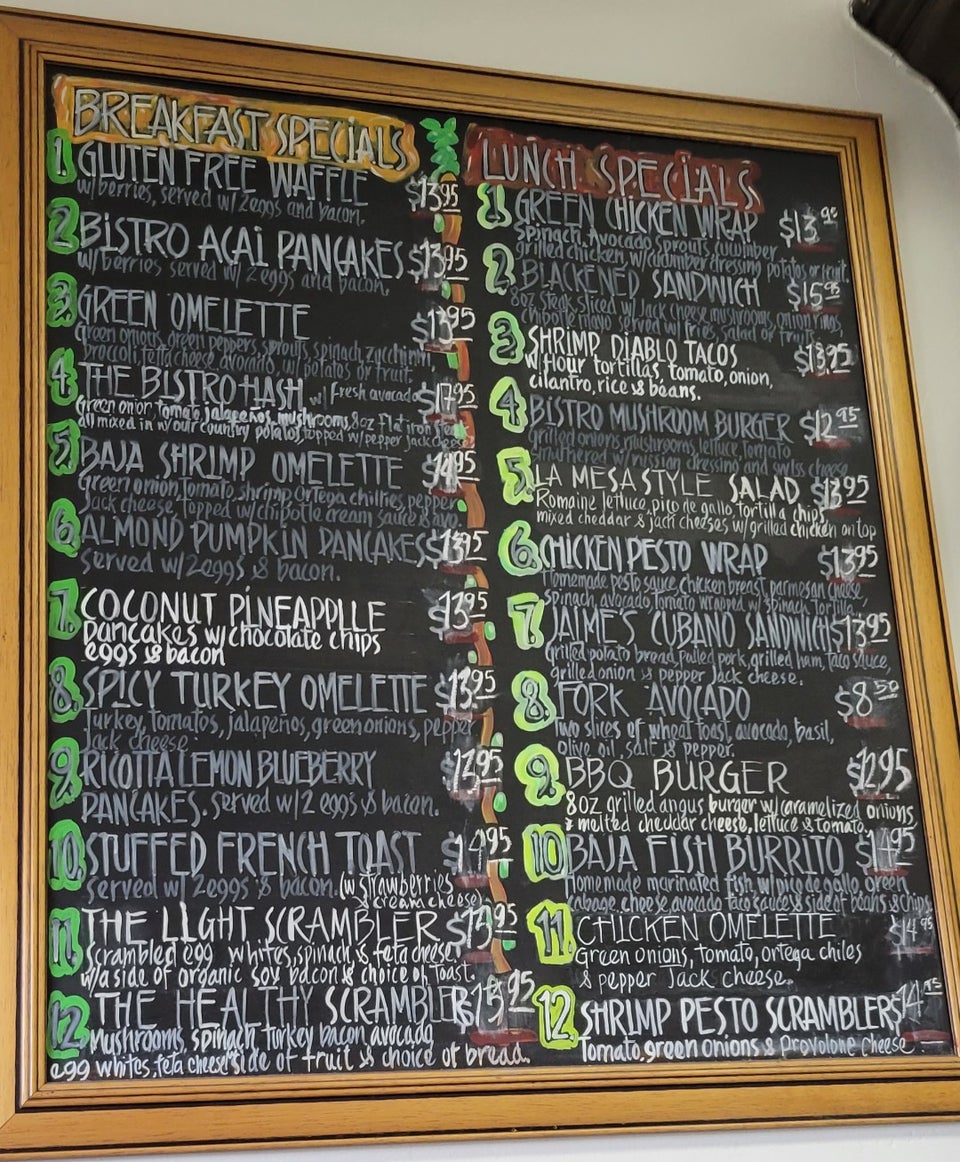 BREAKFAST SPECIALS
1. GLUTEN FREE WAFFLE $13.95
w/berries, served w/2eggs and bacon.
2 BISTRO ACAI PANCAKES $13.95
w/berries served w/ 2eggs and bacon.
3. GREEN OMELETTE $13.95
green onions, green peppers, sprouts, spinach, zycchini
broccoli, feta cheese, avocado, w/ potatos or fruit.
4 THE BISTRO HASH w/ Fresh avocado $17.95
Green onion, tomato, jalapeños, mushrooms, 8oz Flat iron steak
all mixed in w/our country potatos, topped w/pepper jack cheese
5. BAJA SHRIMP OMELETTE $14.95
Green onion, tomato, shrimp, ortega chilies, pepper
Jack cheese, topped w/chipotle cream sauce & avo.
6. ALMOND PUMPKIN PANCAKES $13.95
served w/2eggs & bacon.
7. COCONUT PINEAPPLLE $13.95
pancakes w/chocolate chips
eggs & bacon
8. SPICY TURKEY OMELETTE $13.95
Turkey, tomatos, jalapeños, green onions, pepper
Jack cheese
9. RICOTTA LEMON BLUEBERRY $13.95
PANCAKES. served w/2 eggs & bacon.
10. STUFFED FRENCH TOAST $14.95
served w/2eggs & bacon. (w/strawberries
& cream cheese)
11. THE LIGHT SCRAMBLER $13.95
Scrambled egg whites, spinach & feta cheese.
w/a side of organic soy bacon & choice of toast.
12 THE HEALTHY SCRAMBLER $13.95
Mushrooms, spinach, turkey bacon, avocado,
egg whites, feta cheese side of fruit & choice of bread.
LUNCH SPECIALS
1 GREEN CHICKEN WRAP $13.95
Spinach, Avocado sprouts, cucumber
grilled chicken, w/cucumber dressing potatos or fruit
2. BLACKENED SANDWICH $15.95
8oz steak sliced w/Jack cheese mushrooms, onion rings,
chipotle mayo served w/fries, salad or fruit
3 SHRIMP DIABLO TACOS $13.95
w/flour tortillas, tomato, onion,
cilantro, rice & beans.
4 BISTRO MUSHROOM BURGER $12.95
grilled onions, mushrooms, lettuce, tomato
smothered w/russian dressing and swiss cheese
5. LA MESA STYLE SALAD $13.95
Romaine lettuce, pico de gallo, tortilla chips
mixed cheddar & jack cheeses w/grilled chicken on top
6. CHICKEN PESTO WRAP $13.95
Homemade pesto sauce, chicken breast, parmesan cheese,
spinach, avocado, tomato wrapped w/spinach tortilla.
7. JAIME'S CUBANO SANDWICH $13.95
grilled potato bread, pulled pork, grilled ham, taco sauce,
grilled onion & pepper Jack cheese.
8. FORK AVOCADO $8.50
Two slices of wheat toast, avocado, basil,
olive oil, salt & pepper.
9. BBQ BURGER $12.95
8oz grilled angus burger w/caramelized onions
& melted cheddar cheese, lettuce & tomato.
10 BAJA FISH BURRITO $14.95
Homemade marinated fish, w/pico de gallo, green
cabbage, cheese, avocado taco sauce & side of beans & chips.
11 CHICKEN OMELETTE $14.95
Green onions, tomato, ortega chiles
& pepper Jack cheese.
12. SHRIMP PESTO SCRAMBLER $14.95
Tomato, green onions & provolone cheese.